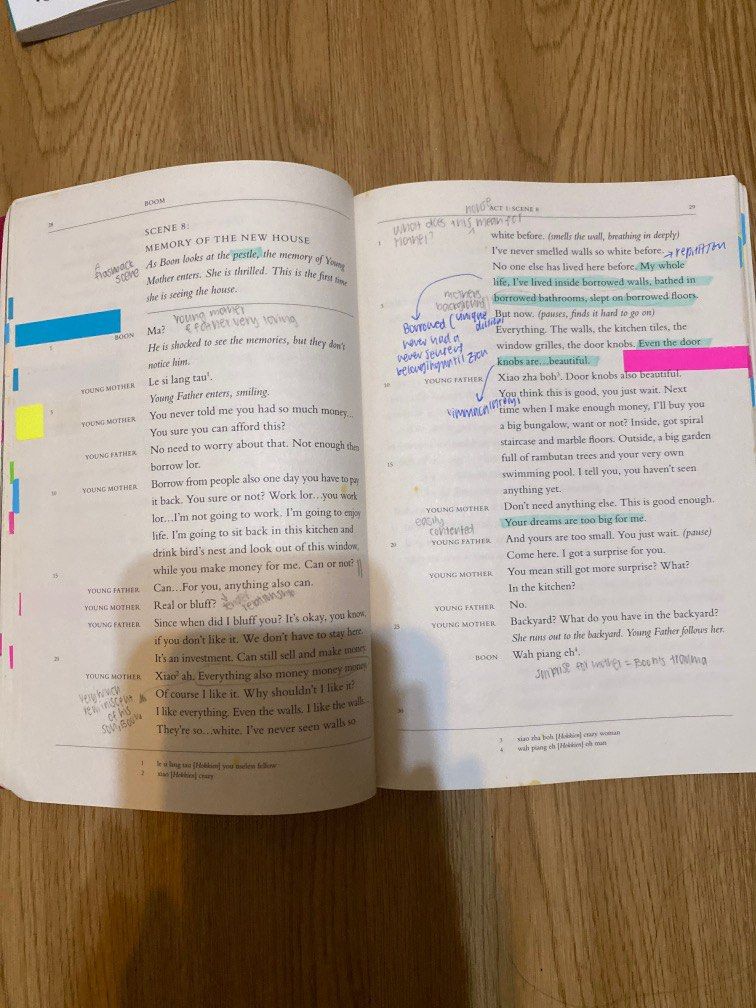 28
BOOM
SCENE 8:
MEMORY OF THE NEW HOUSE
As Boon looks at the pestle, the memory of Young
Mother enters. She is thrilled. This is the first time
she is seeing the house.
flashback
scene
young mother
& father very loving
BOON Ma?
He is shocked to see the memories, but they don't
notice him.
YOUNG MOTHER Le si lang tau¹.
Young Father enters, smiling.
5
YOUNG MOTHER You never told me you had so much money...
You sure you can afford this?
YOUNG FATHER No need to worry about that. Not enough then
borrow lor.
10 YOUNG MOTHER Borrow from people also one day you have to pay
it back. You sure or not? Work lor...you work
lor...I'm not going to work. I'm going to enjoy
life. I'm going to sit back in this kitchen and
drink bird's nest and look out of this window,
15 while you make money for me. Can or not?
YOUNG FATHER Can...For you, anything also can.
YOUNG MOTHER Real or bluff?
relationship
YOUNG FATHER Since when did I bluff you? It's okay, you know,
if you don't like it. We don't have to stay here.
20 It's an investment. Can still sell and make money.
YOUNG MOTHER Xiao² ah. Everything also money money money.
Of course I like it. Why shouldn't I like it?
I like everything. Even the walls. I like the walls...
They're so...white. I've never seen walls so
very much
reminiscent
of his
son, Boon
1 le si lang tau [Hokkien] you useless fellow
2 xiao [Hokkien] crazy
ACT 1: SCENE 8
29
what does this mean for
mother?
1 white before. (smells the wall, breathing in deeply)
I've never smelled walls so white before.
repetition
No one else has lived here before. My whole
life, I've lived inside borrowed walls, bathed in
5 borrowed bathrooms, slept on borrowed floors.
But now. (pauses, finds it hard to go on)
Everything. The walls, the kitchen tiles, the
window grilles, the door knobs. Even the door
knobs are...beautiful.
mothers
background
Borrowed (unique
never had a
never sense of
belonging until Zion
10 YOUNG FATHER Xiao zha boh³. Door knobs also beautiful.
You think this is good, you just wait. Next
time when I make enough money, I'll buy you
a big bungalow, want or not? Inside, got spiral
staircase and marble floors. Outside, a big garden
15 full of rambutan trees and your very own
swimming pool. I tell you, you haven't seen
anything yet.
YOUNG MOTHER Don't need anything else. This is good enough.
Your dreams are too big for me.
easily
contented
20 YOUNG FATHER And yours are too small. You just wait. (pause)
Come here. I got a surprise for you.
YOUNG MOTHER You mean still got more surprise? What?
In the kitchen?
YOUNG FATHER No.
25 YOUNG MOTHER Backyard? What do you have in the backyard?
She runs out to the backyard. Young Father follows her.
BOON Wah piang eh⁴.
surprise for mother = Boon's trauma
30
3 xiao zha boh [Hokkien] crazy woman
4 wah piang eh [Hokkien] oh man